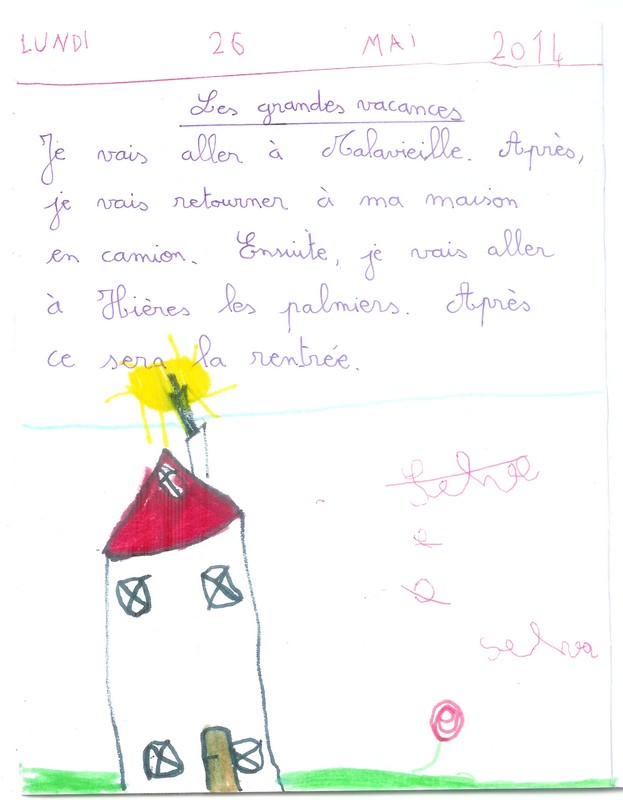 LUNDI 26 MAI 2014
Les grandes vacances
Je vais aller à Malavieille. Après,
je vais retourner à ma maison
en camion. Ensuite, je vais aller
à Hières les palmiers. Après
ce sera la rentrée.
e
e
selva